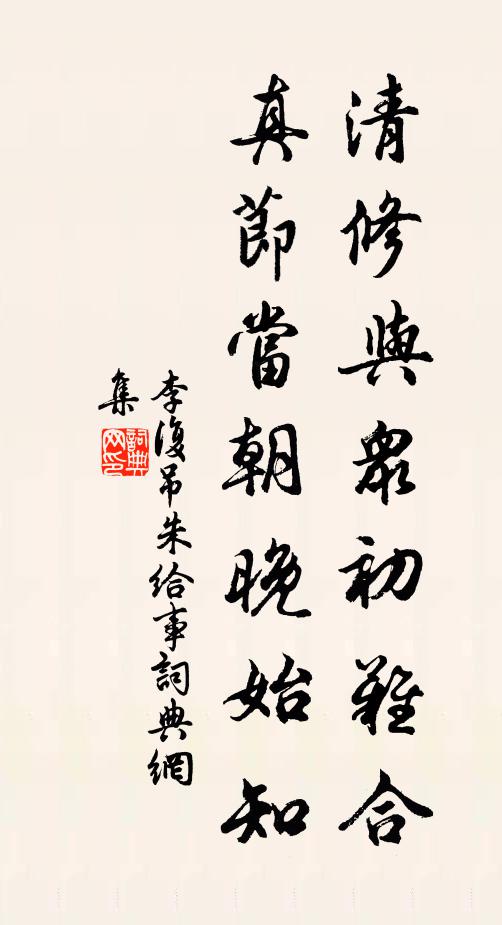 清修與眾初難合
真節當朝晚始知
李復吊朱給事詞典網
集
詞典網印